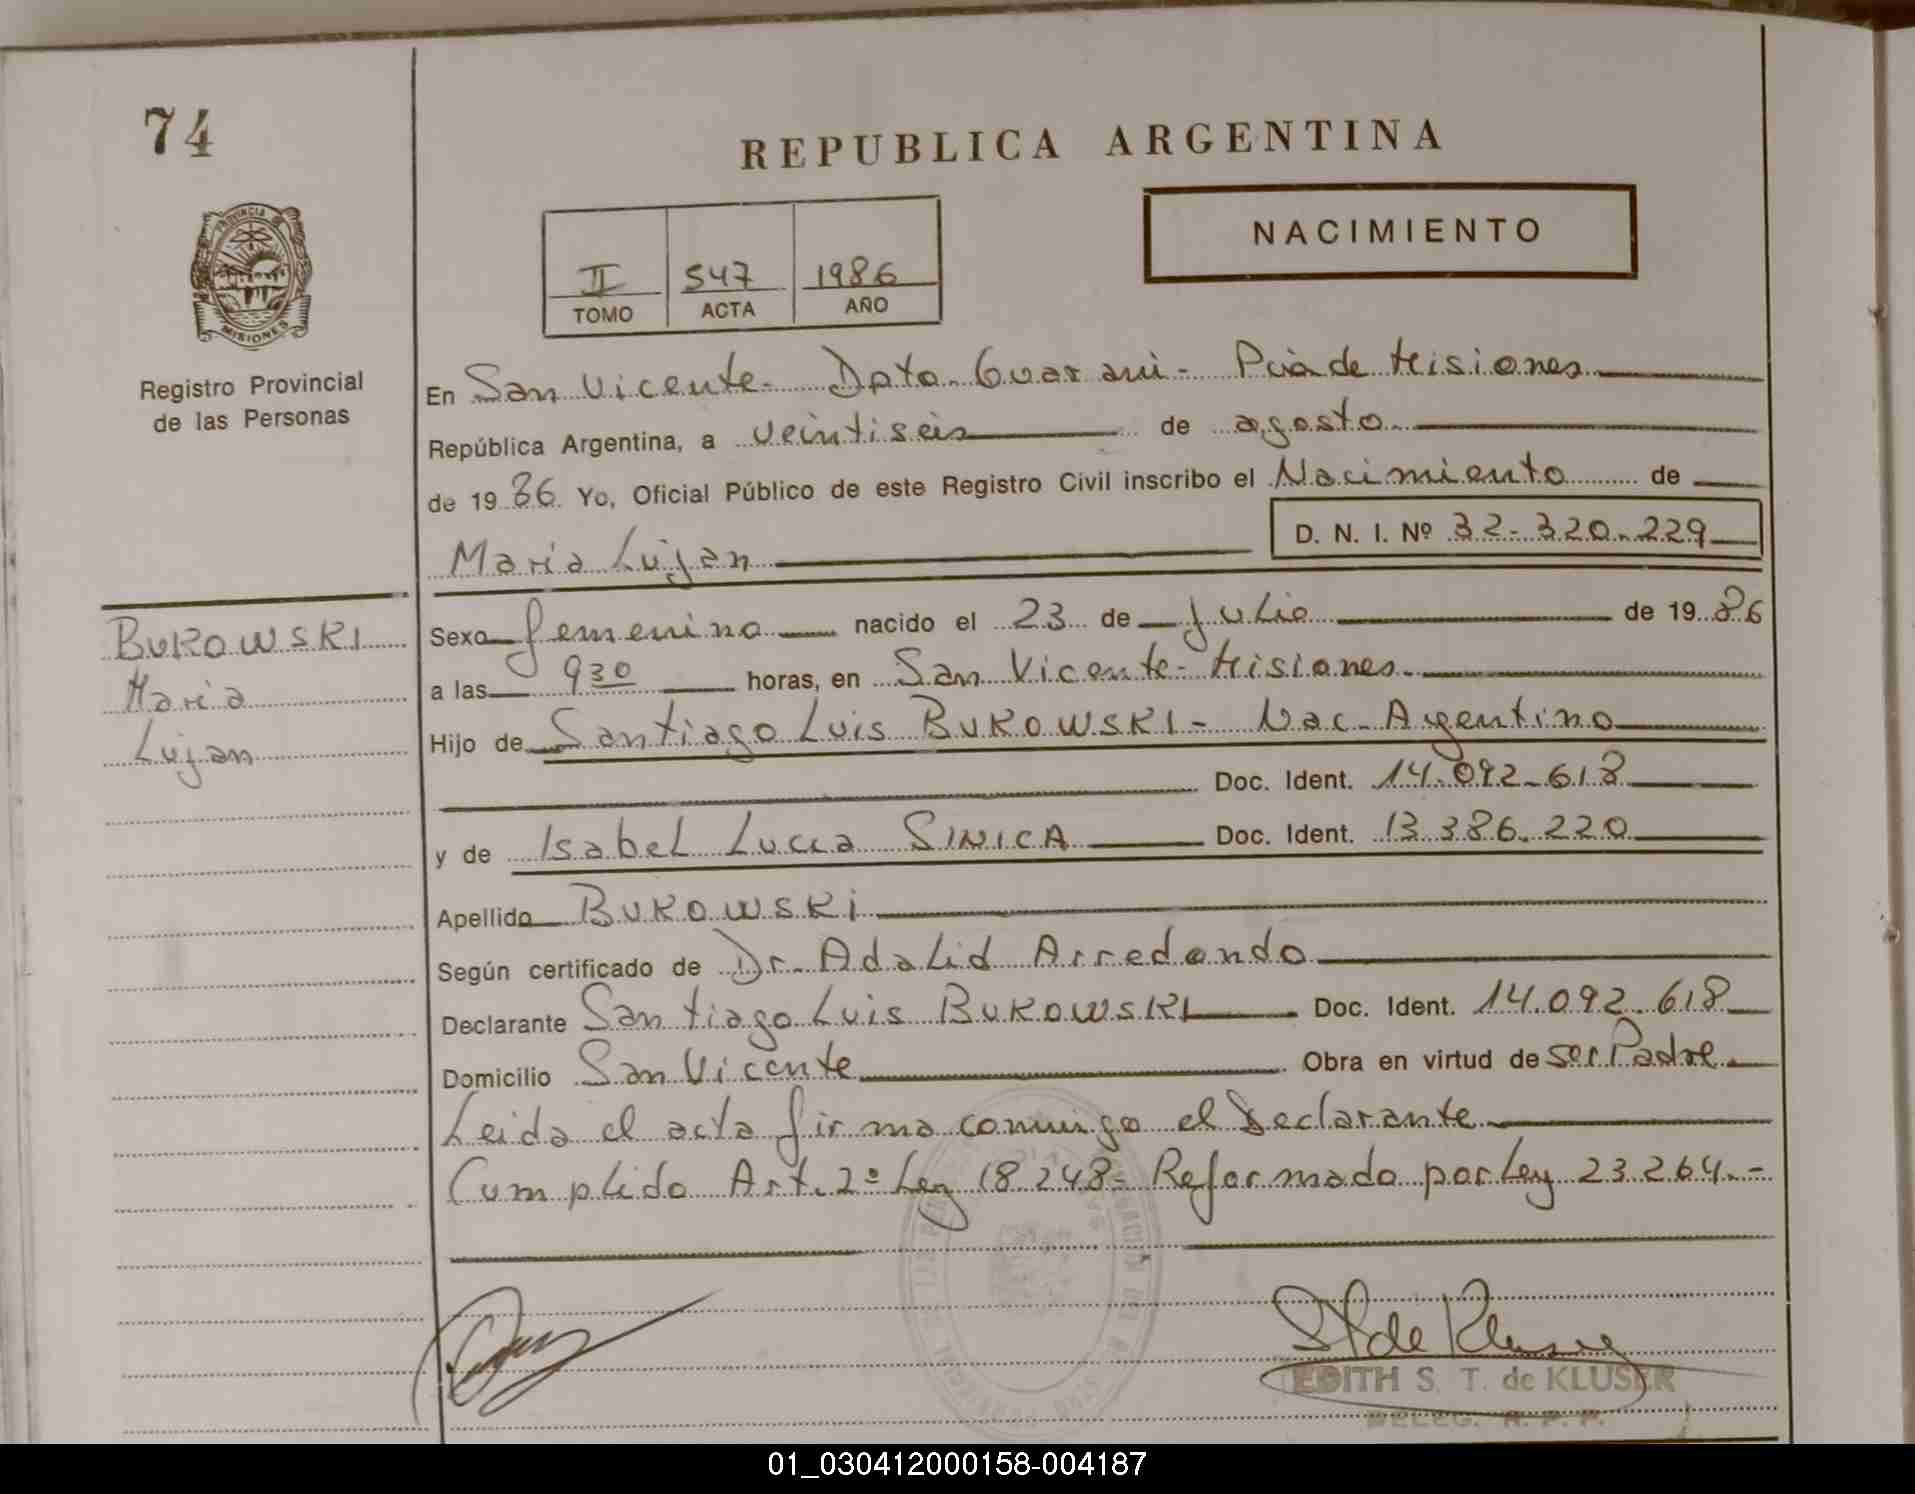 74
REPUBLICA ARGENTINA
NACIMIENTO
II 547 1986
TOMO ACTA AÑO
PROVINCIA DE
MISIONES
Registro Provincial
de las Personas
En San Vicente - Dpto. Guarani - Pcia de Misiones
República Argentina, a veintiseis de agosto
de 19 86 Yo, Oficial Público de este Registro Civil inscribo el Nacimiento de
D. N. I. Nº 32-320.229
Maria Lujan
BUKOWSKI
Maria
Lujan
Sexo femenino nacido el 23 de Julio de 19 86
a las 9 30 horas, en San Vicente - Misiones
Hijo de Santiago Luis BUKOWSKI - Nac. Argentino
Doc. Ident. 14.092-618
y de Isabel Lucia SINICA Doc. Ident. 13.386.220
Apellido BUKOWSKI
Según certificado de Dr. Adalid Arredondo
Declarante Santiago Luis BUKOWSKI Doc. Ident. 14.092.618
Domicilio San Vicente Obra en virtud de ser Padre
Leida el acta firma conmigo el Declarante
Cumplido Art. 2º Ley 18.248 - Reformado por Ley 23.264.-
EDITH S. T. de KLUSER
DELEG. R. P. P.
01_030412000158-004187